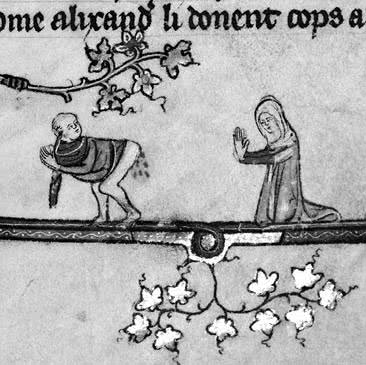 ome alixand' li donent cops a